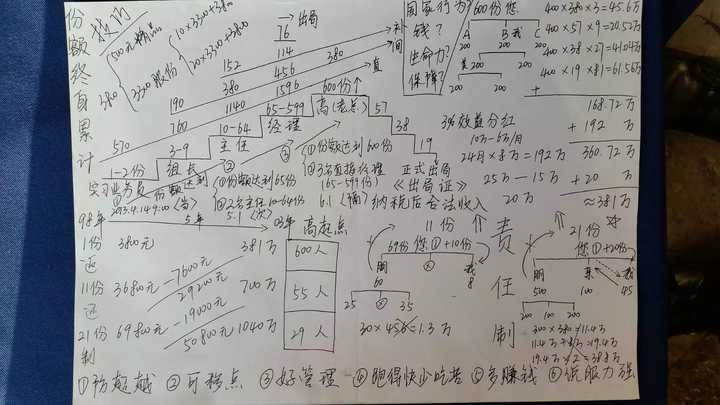 份额终身累计
投资
3800
500元精品
3300股份
10×3300+3800
20×3300+3800
→出局
76
114
152
380
补
间
190
380
456
直
760
1140
1596
570
1-2份
3-9
10-64
65-599
600份↑
实习业务员
组长
主任
经理
高(老总)
57
38
19
①份额达到
②
③
①份额达到65份
②2名主任10-64份
①份额达到600份
②3名直接经理
(65-599份)
正式出局
《出局证》
纳税后合法收入
2003.4.149.00《告》
5.1《次》
6.1《稀》
国家行为?
钱?
生命力?
保障?
600份您
A B我 C
200 200 200
200
200 200
400×380×3=45.6万
400×57×9=20.52万
400×38×27=41.04万
400×19×81=61.56万
+
168.72万
+192万
360.72万
+20万
≈381万
3%效益分红
10万-6万/月
24月×8万=192万
25万-15万
20万
98年
5年
03年
高起点
1份 3800元
381万
600人
返
-7600元
11份 36800元
29200元
700万
55人
返
-19000元
21份 69800元
50800元
1040万
29人
制
11份
69份您①+10份
朋
60
我
8
25
35
30×456≈1.3万
责任制
21份
您①+20份
朋
500
100
我
45
200 100 200
300×380=11.4万
11.4万+8万=19.4万
19.4万×2=38.8万
①防超越 ②可移点 ③好管理 ④跑得快少吃苦 ⑤多赚钱 ⑥说服力强